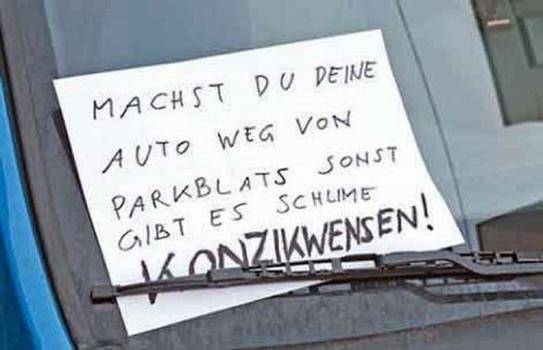 MACHST DU DEINE
AUTO WEG VON
PARKBLATS SONST
GIBT ES SCHLIME
KONZIKWENSEN!